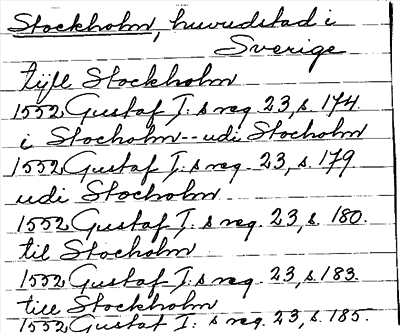 Stockholm, huvudstad i
Sverige
tijll Stockholm
1552 Gustaf I:s reg. 23, s. 174.
i Stocholm--udi Stocholm
1552 Gustaf I:s reg. 23, s. 179
udi Stocholm
1552 Gustaf I:s reg. 23, s. 180.
til Stocholm
1552 Gustaf I:s reg. 23, s. 183.
till Stockholm
1552 Gustaf I:s reg. 23, s. 185.